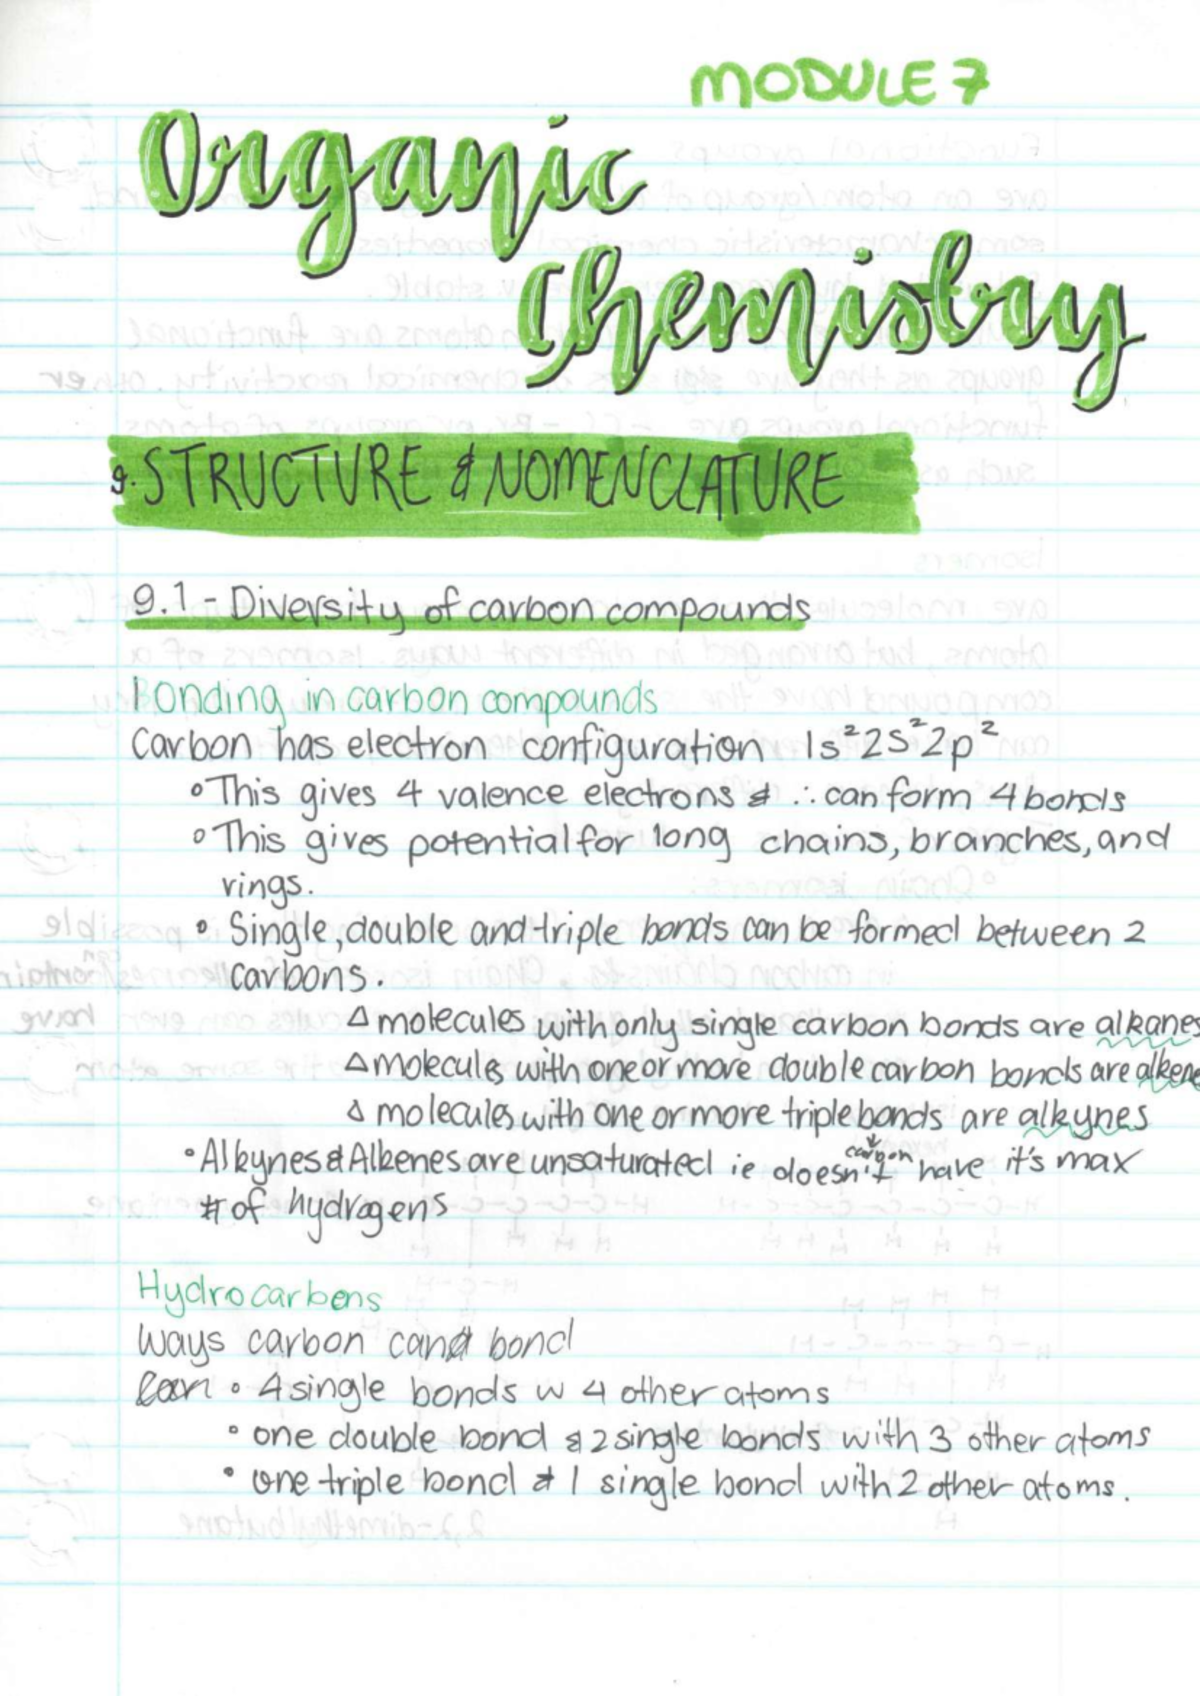 MODULE 7
Organic
Chemistry
9. STRUCTURE & NOMENCLATURE
9.1 - Diversity of carbon compounds
Bonding in carbon compounds
Carbon has electron configuration 1s²2s²2p²
° This gives 4 valence electrons & ∴ can form 4 bonds
° This gives potential for long chains, branches, and
rings.
° Single, double and triple bonds can be formed between 2
carbons.
△ molecules with only single carbon bonds are alkanes
△ molecules with one or more double carbon bonds are alkene
△ molecules with one or more triple bonds are alkynes
° Alkynes & Alkenes are unsaturated ie carbon doesn't have it's max
# of hydrogens
Hydrocarbons
Ways carbon can bond
° 4 single bonds w 4 other atoms
° one double bond & 2 single bonds with 3 other atoms
° one triple bond & 1 single bond with 2 other atoms.